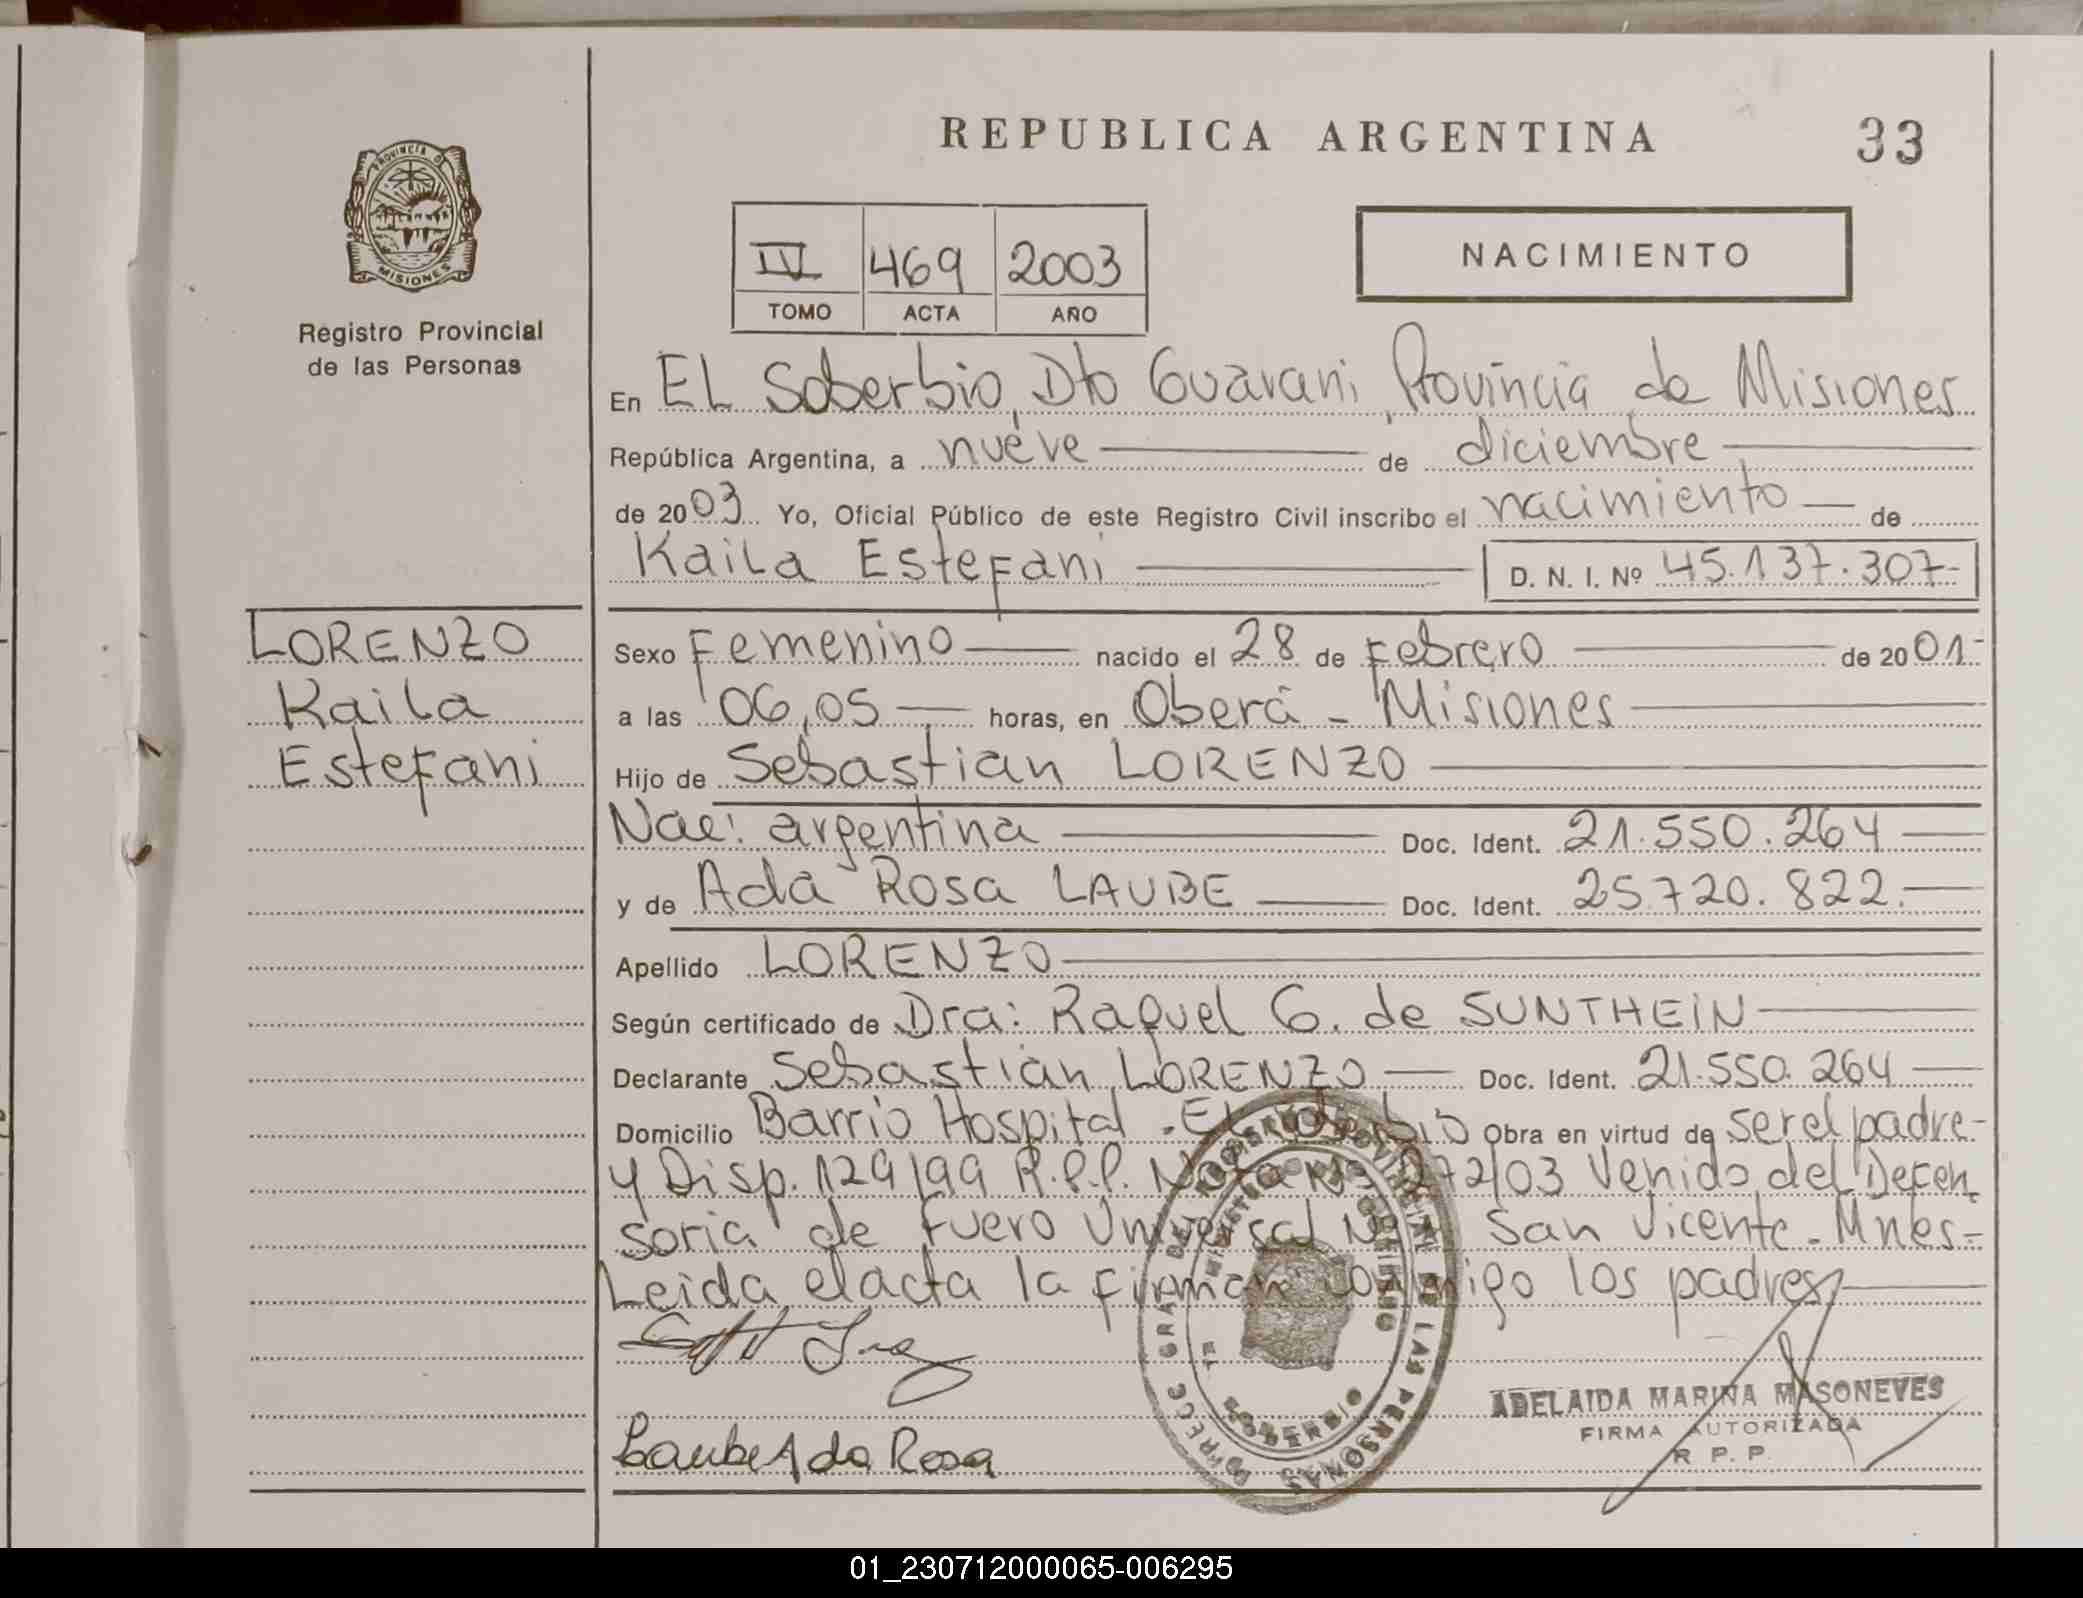 REPUBLICA ARGENTINA
33
PROVINCIA D
MISIONES
Registro Provincial
de las Personas
IV 469 2003
TOMO ACTA AÑO
NACIMIENTO
En EL Soberbio, Dto Guarani, Provincia de Misiones
República Argentina, a nueve de diciembre
de 2003 Yo, Oficial Público de este Registro Civil inscribo el nacimiento de
Kaila Estefani D. N. I. Nº 45.137.307-
LORENZO
Kaila
Estefani
Sexo Femenino nacido el 28 de Febrero de 2001-
a las 06,05 horas, en Oberá - Misiones
Hijo de Sebastian LORENZO
Nac: argentina Doc. Ident. 21.550.264
y de Ada Rosa LAUBE Doc. Ident. 25.720.822.
Apellido LORENZO
Según certificado de Dra: Raquel G. de SUNTHEIN
Declarante Sebastian LORENZO Doc. Ident. 21.550.264
Domicilio Barrio Hospital - El Soberbio Obra en virtud de ser el padre-
y Disp. 129/99 R.P.P. Nota Nº 272/03 Venido del Defen
soria de Fuero Universal San Vicente - Mnes-
Leida el acta la firman conmigo los padres
Laube Ada Rosa
REGISTRO PROVINCIAL DE LAS PERSONAS
MINISTERIO DE GOBIERNO
SOBERBIO
ADELAIDA MARINA MASONEVES
FIRMA AUTORIZADA
R. P. P.
01_230712000065-006295